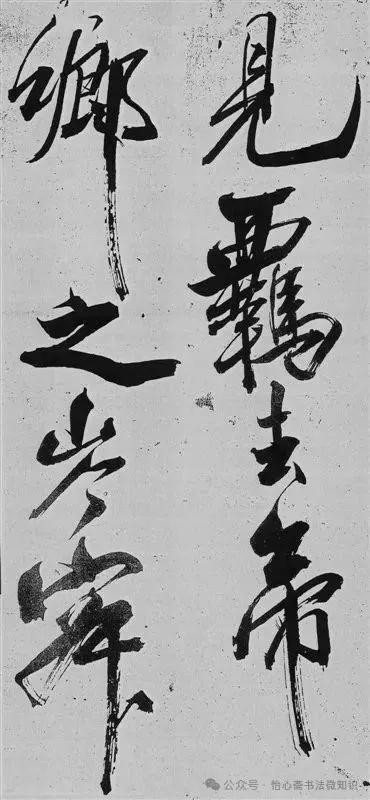 見羈去帝
鄉之岑寂
公众号 · 怡心斋书法微知识